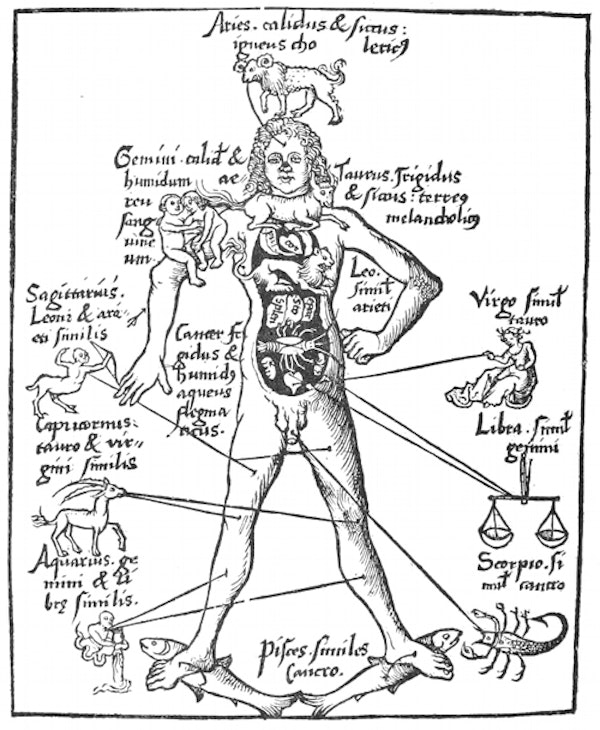 Aries. calidus & siccus:
igneus cho
lericꝰ
Gemini. calid' &
humidum ae
reu
sang
uine
um.
Taurus. frigidus
& siccus: terreꝰ
melancholicꝰ
Leo.
simil'
arieti
Sagittarius.
Leoni & ari-
eti similis
Cancer fri
gidus &
humidꝰ
aqueus
flegma
ticus.
Virgo simil'
tauro
Capricornus.
tauro & vir-
gini similis
Libra. simil'
gemini
Aquarius. ge
mini & li
brę similis.
Scorpio. si
mil' cancro
Pisces. similes
Cancro.